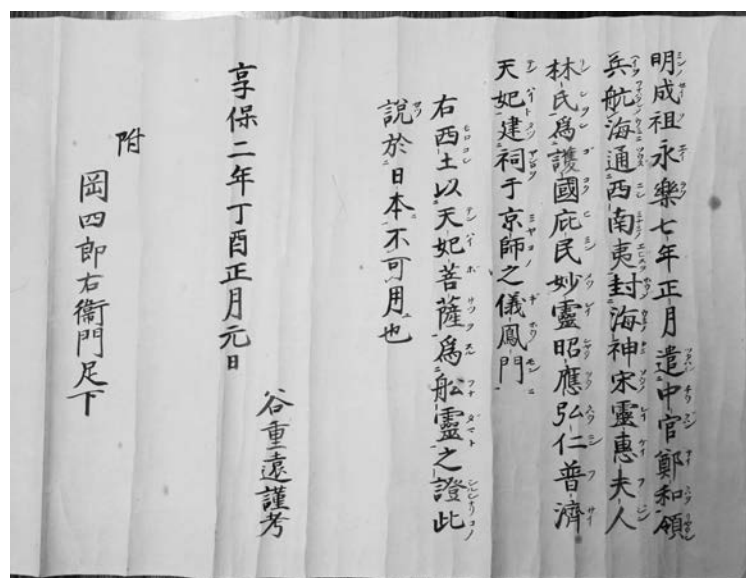 明成祖永樂七年正月遣中官鄭和領
兵航海通西南夷封海神宋靈惠夫人
林氏爲護國庇民妙靈昭應弘仁普濟
天妃建祠于京師之儀鳳門
右西土以天妃菩薩爲舩靈之證此
說於日本不可用也
享保二年丁酉正月元日
谷重遠謹考
附
岡四郎右衞門足下